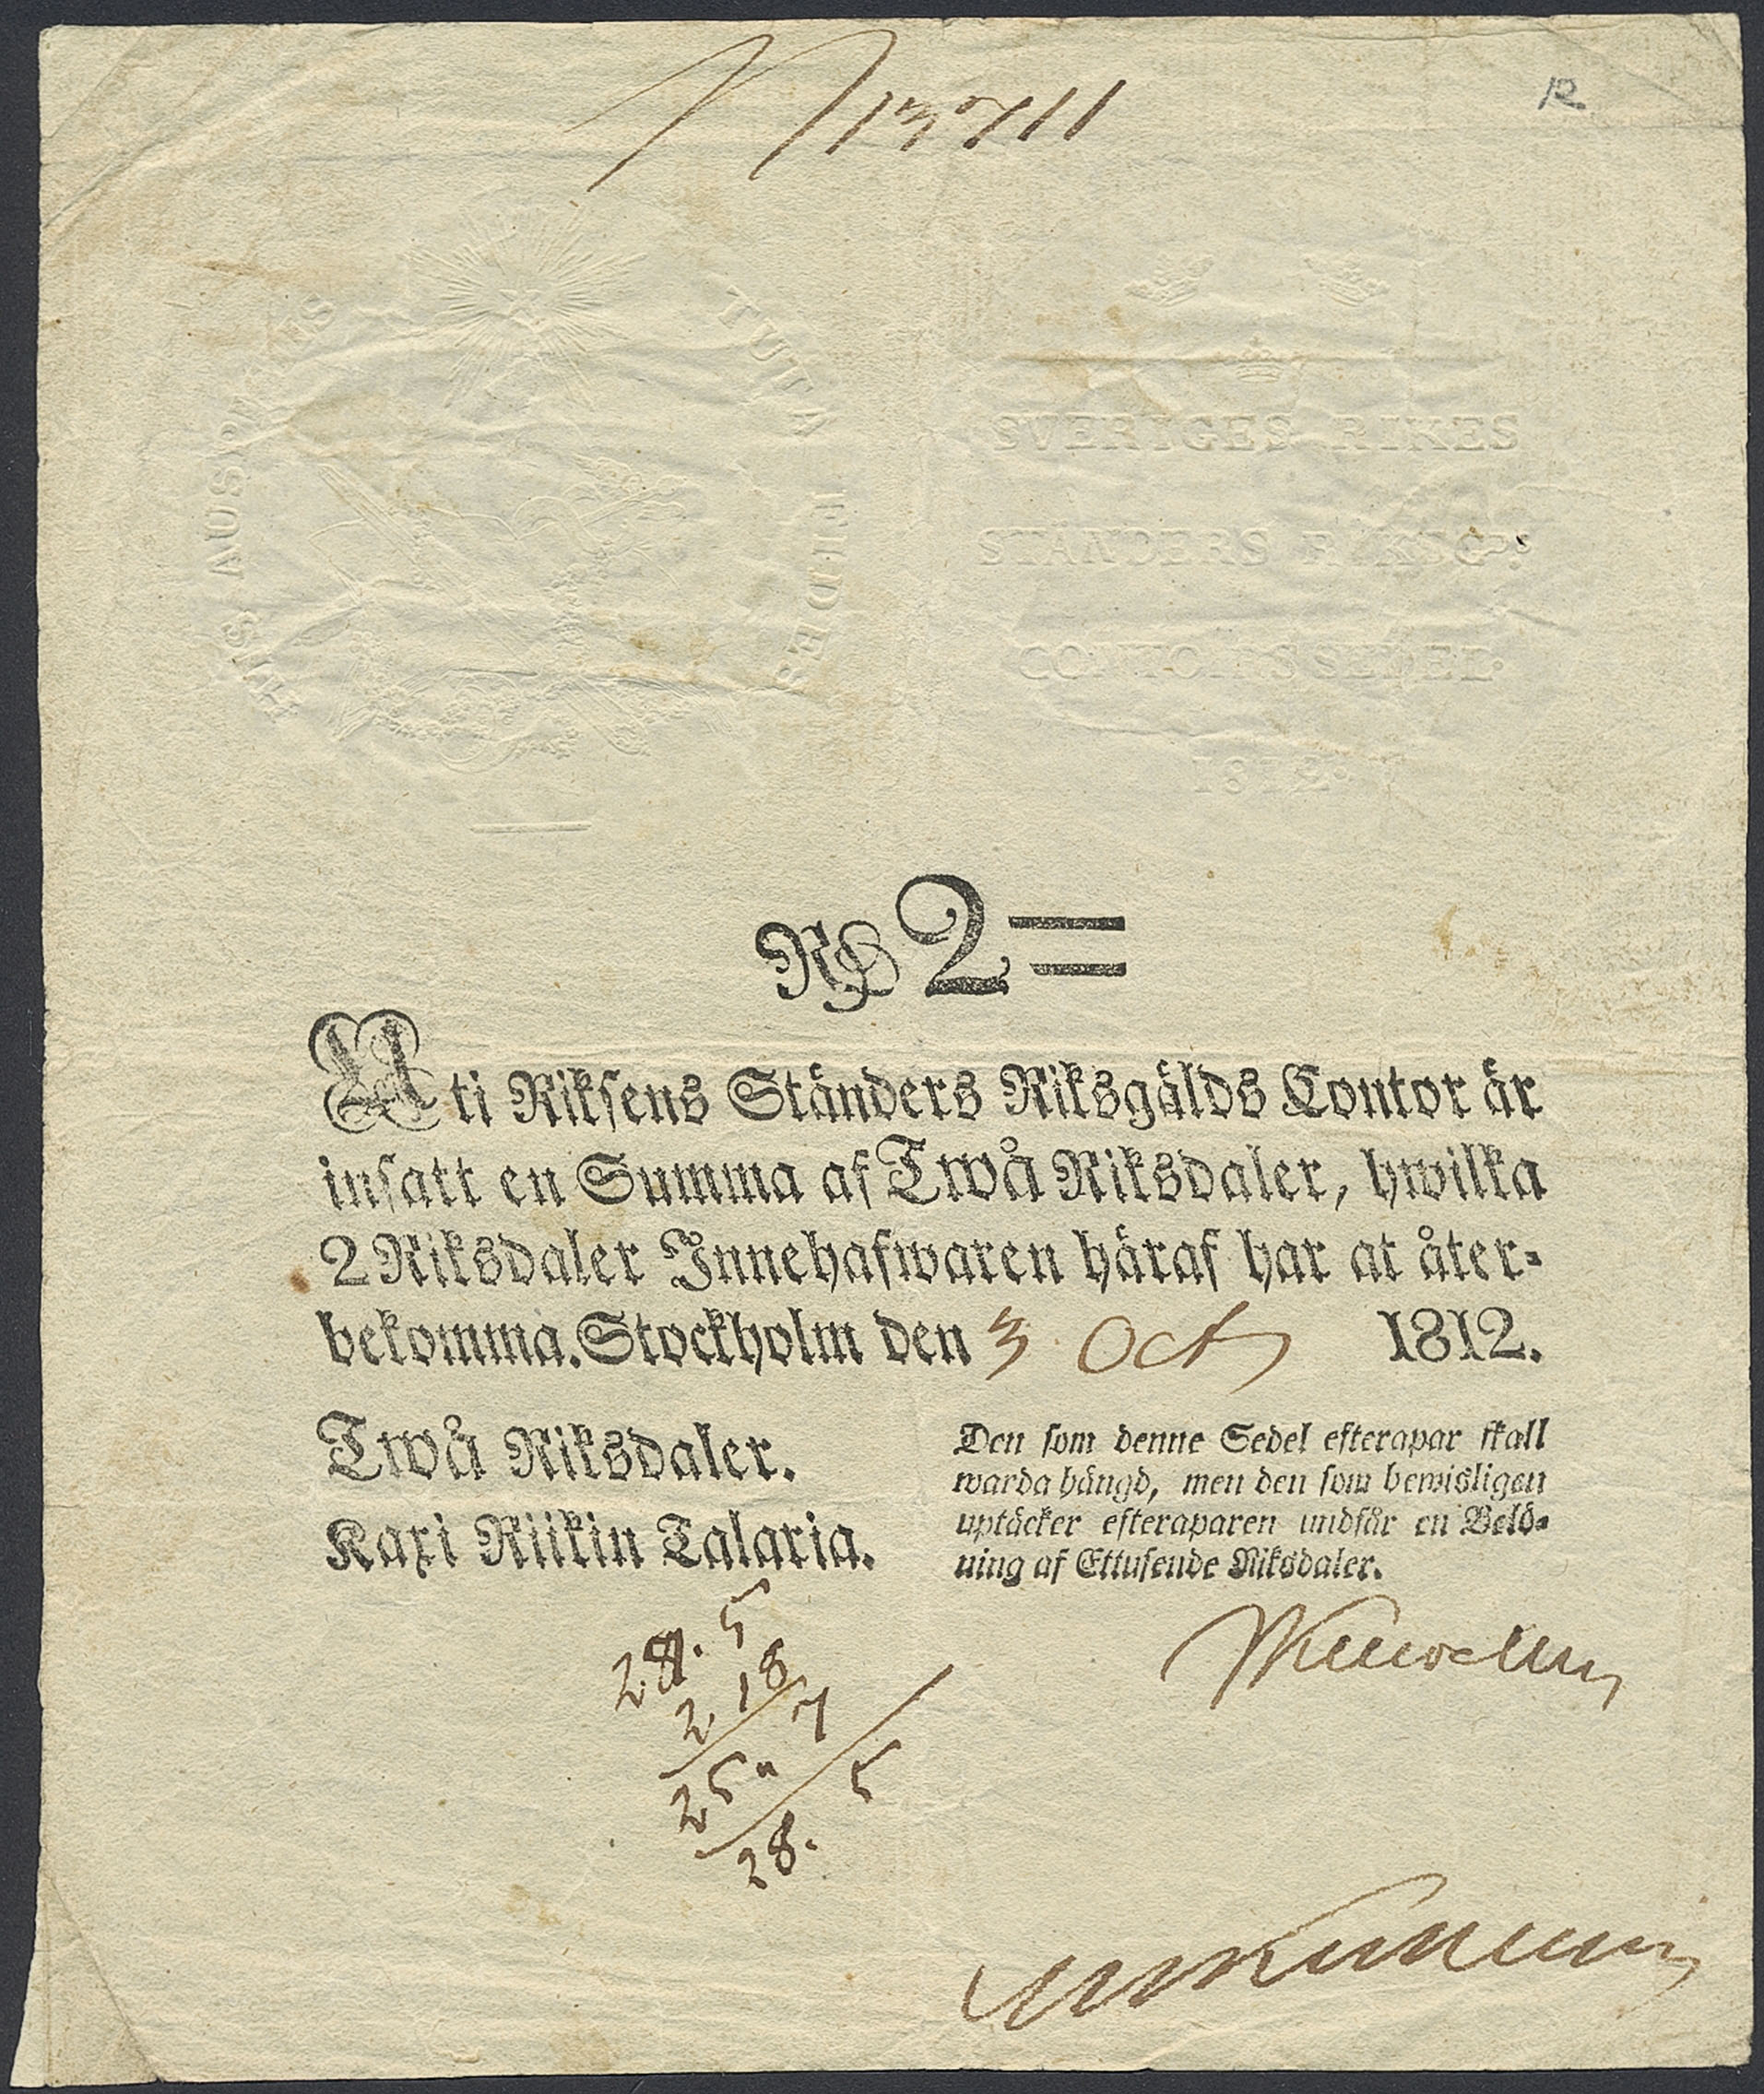 N 13711
12
HIS AUSPICIIS TUTA FIDES
SVERIGES RIKES
STÄNDERS RIKSG:s
CONTOIRS SEDEL.
1812.
Rd 2=
Uti Riksens Ständers Riksgälds Contor är
insatt en Summa af Twå Riksdaler, hwilka
2 Riksdaler Innehafwaren häraf har at åter=
bekomma. Stockholm den 3 Oct 1812.
Twå Riksdaler.
Kaxi Riikin Talaria.
Den som denne Sedel efterapar skall
warda hängd, men den som bewisligen
uptäcker efteraparen undfår en Belö=
ning af Ettusende Riksdaler.
28. 5
2 18
7
25 "
5
28.